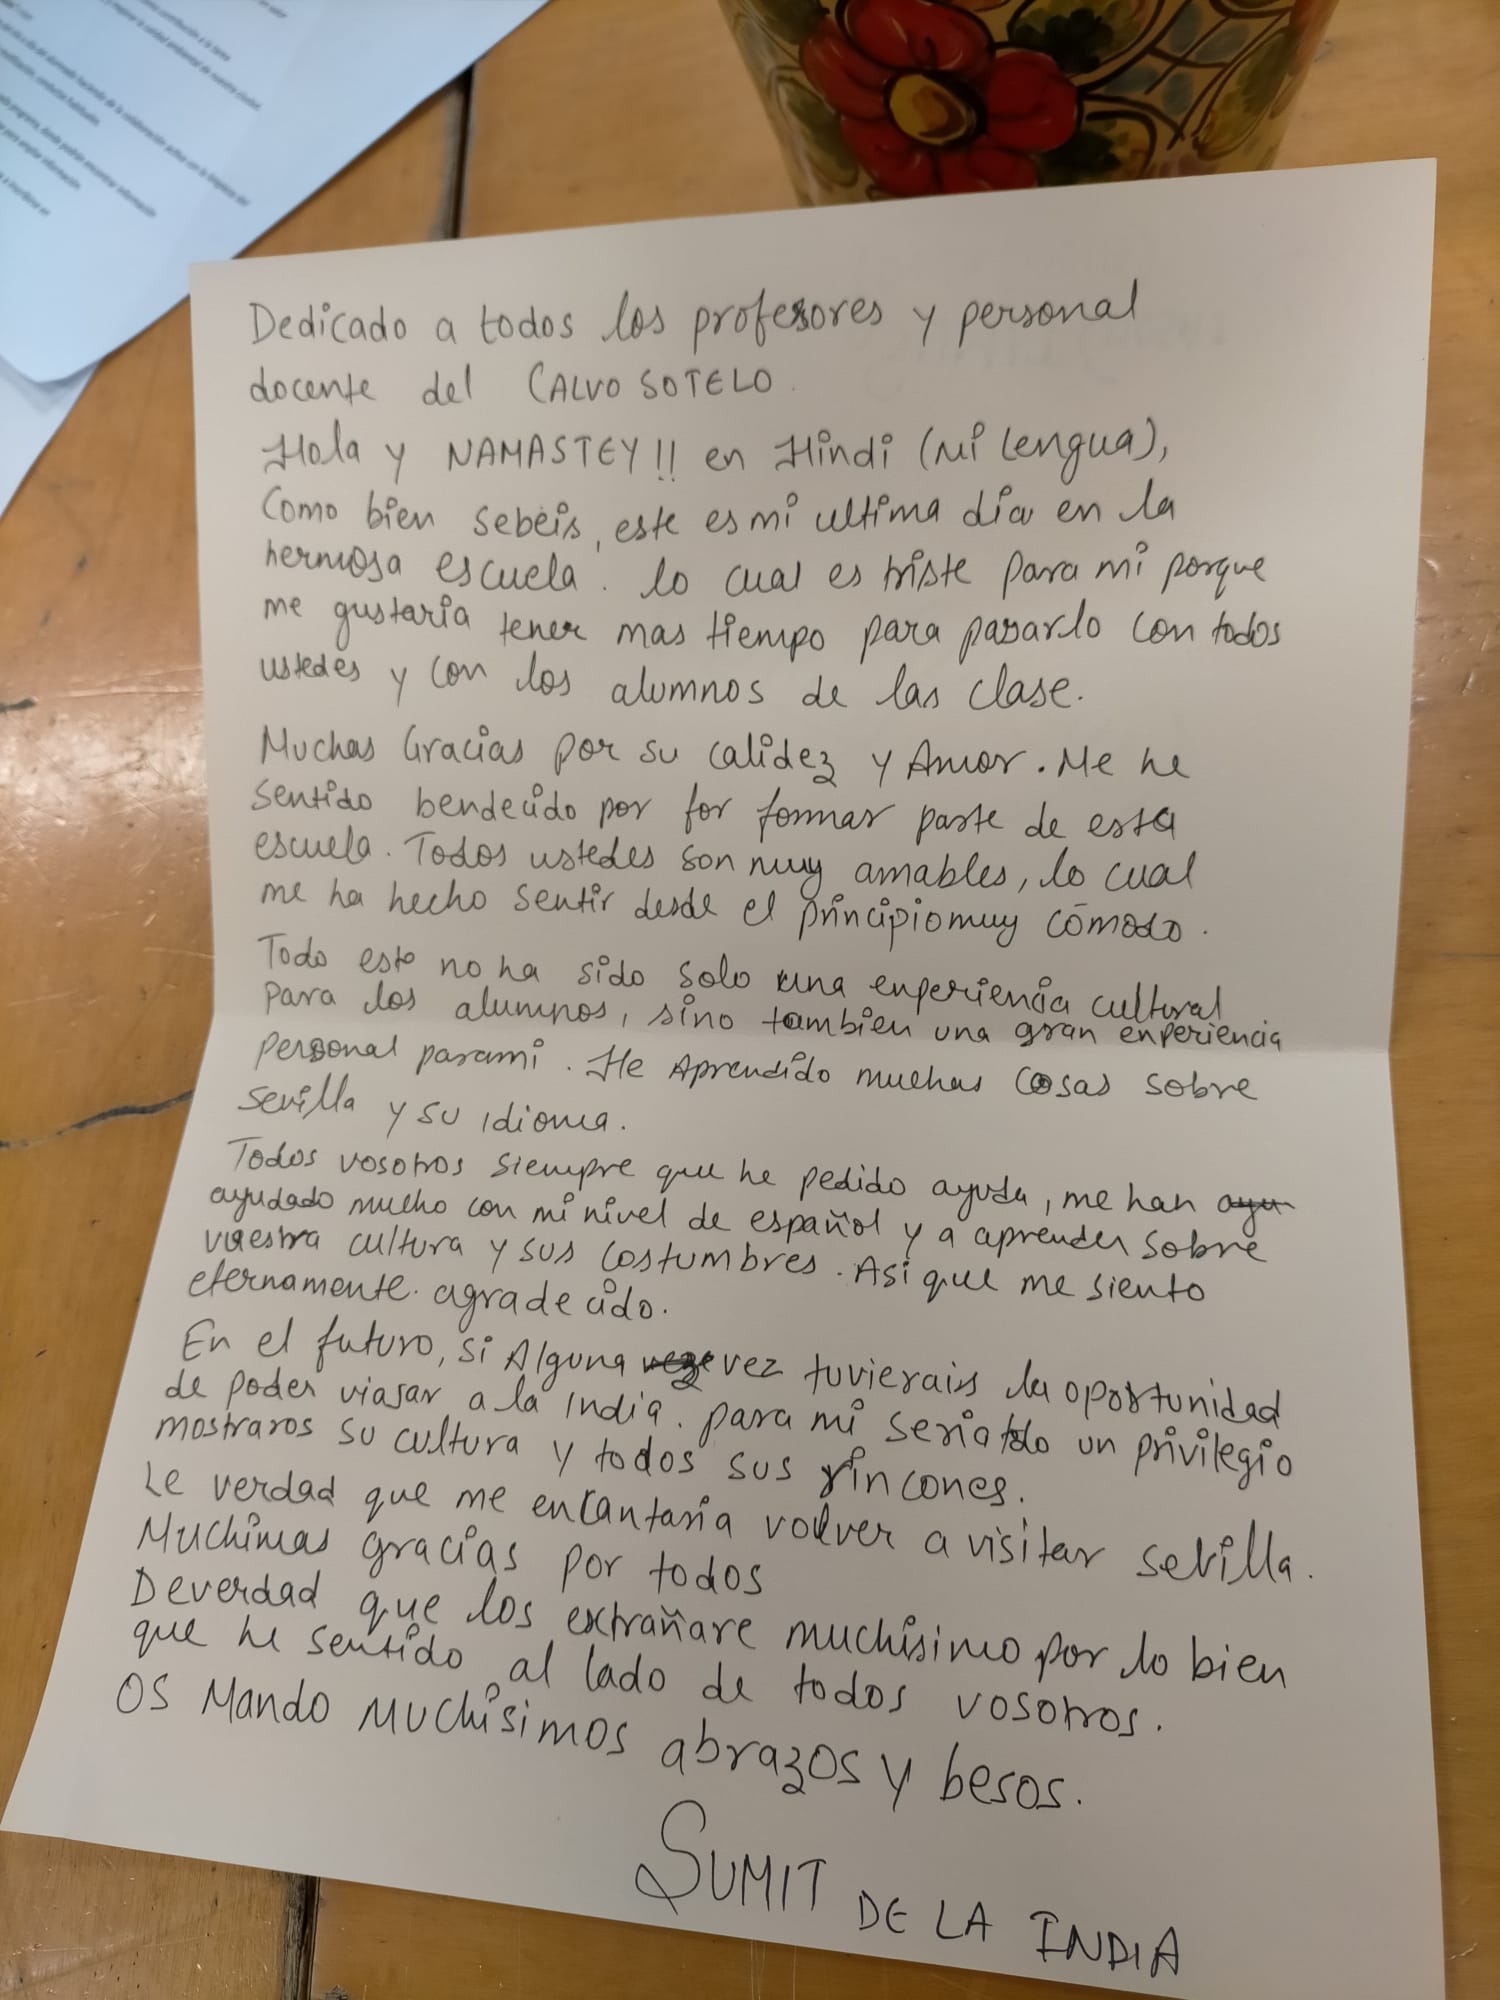 Dedicado a todos los profesores y personal
docente del CALVO SOTELO.
Hola y NAMASTEY!! en Hindi (Mi lengua),
Como bien sebéis, este es mi ultima día en la
hermosa escuela. lo cual es triste para mi porque
me gustaria tener mas tiempo para pasarlo con todos
ustedes y con los alumnos de las clase.
Muchas Gracias por su calidez y Amor. Me he
sentido bendecido por for formar parte de esta
escuela. Todos ustedes son muy amables, lo cual
me ha hecho sentir desde el principio muy cómodo.
Todo esto no ha sido solo una enperiencia cultural
para los alumnos, sino tambien una gran enperiencia
personal para mi. He Aprendido muchas cosas sobre
sevilla y su idioma.
Todos vosotros siempre que he pedido ayuda, me han ayu
ayudado mucho con mi nivel de español y a aprender sobre
vuestra cultura y sus costumbres. Asi que me siento
eternamente. agradecido.
En el futuro, si Alguna vez tuvierais la oportunidad
de poder viajar a la India. para mi seria un privilegio
mostraros su cultura y todos sus rincones.
Le verdad que me encantaria volver a visitar sevilla.
Muchimas gracias por todos
Deverdad que los extrañare muchísimo por lo bien
que he sentido al lado de todos vosotros.
OS Mando Muchísimos abrazos y besos.
SUMIT DE LA INDIA